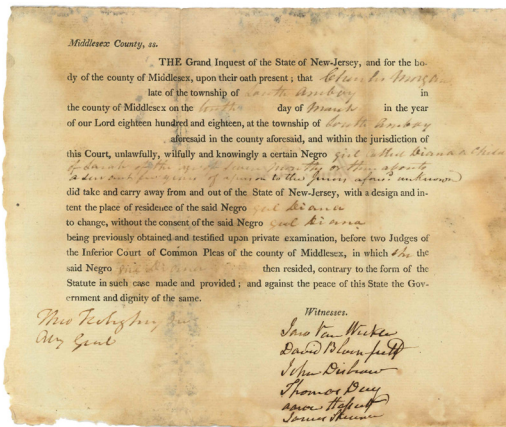 Middlesex County, ss.
THE Grand Inquest of the State of New-Jersey, and for the bo-
dy of the county of Middlesex, upon their oath present; that Charles Morgan
late of the township of South Amboy in
the county of Middlesex on the day of March in the year
of our Lord eighteen hundred and eighteen, at the township of South Amboy
aforesaid in the county aforesaid, and within the jurisdiction of
this Court, unlawfully, wilfully and knowingly a certain Negro girl called Diana a Child
of the age of years
unknown
did take and carry away from and out of the State of New-Jersey, with a design and in-
tent the place of residence of the said Negro girl Diana
to change, without the consent of the said Negro girl Diana
being previously obtained and testified upon private examination, before two Judges of
the Inferior Court of Common Pleas of the county of Middlesex, in which she the
said Negro then resided, contrary to the form of the
Statute in such case made and provided; and against the peace of this State the Gov-
ernment and dignity of the same.
Witnesses.
Theo Frelinghuysen
Atty Genl
David
John Disbrow
Thomas
James